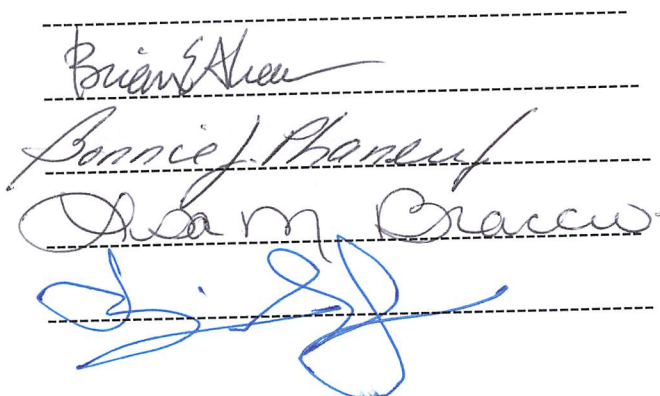 Brian E Ahern
Bonnie J. Phaneuf
Lisa M Braccio